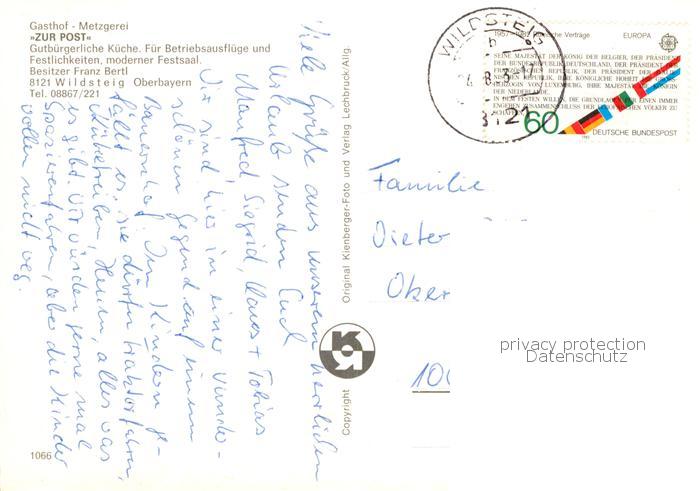 Gasthof - Metzgerei
»ZUR POST«
Gutbürgerliche Küche. Für Betriebsausflüge und
Festlichkeiten, moderner Festsaal.
Besitzer Franz Bertl
8121 Wildsteig Oberbayern
Tel. 08867/221
Viele Grüße aus unserem herrlichen
Urlaub senden Euch
Manfred, Sigrid, Klaus + Tobias
Wir sind hier in einer wunder-
schönen Gegend auf einem
Bauernhof. Den Kindern ge-
fällt es, sie dürfen Traktorfahren,
Kühetreiben, Heuen, alles was
es gibt. Wir würden gerne mal
spazierenfahren, aber die Kinder
wollen nicht weg.
1066
Copyright
Original Kienberger-Foto und Verlag Lechbruck/Allg.
WILDSTEIG
b
8121
1957-1982 Römische Verträge EUROPA
SEINE MAJESTÄT DER KÖNIG DER BELGIER, DER PRÄSIDENT
DER BUNDESREPUBLIK DEUTSCHLAND, DER PRÄSIDENT DER
FRANZÖSISCHEN REPUBLIK, DER PRÄSIDENT DER
REPUBLIK, IHRE KÖNIGLICHE HOHEIT
HERZOGIN VON LUXEMBURG, IHRE MAJESTÄT DIE KÖNIGIN
DER NIEDERLANDE,
IN DEM FESTEN WILLEN, DIE GRUNDLAGEN FÜR EINEN IMMER
ENGEREN ZUSAMMENSCHLUSS DER EUROPÄISCHEN VÖLKER ZU
60
DEUTSCHE BUNDESPOST
Familie
Dieter
Ober
10
privacy protection
Datenschutz